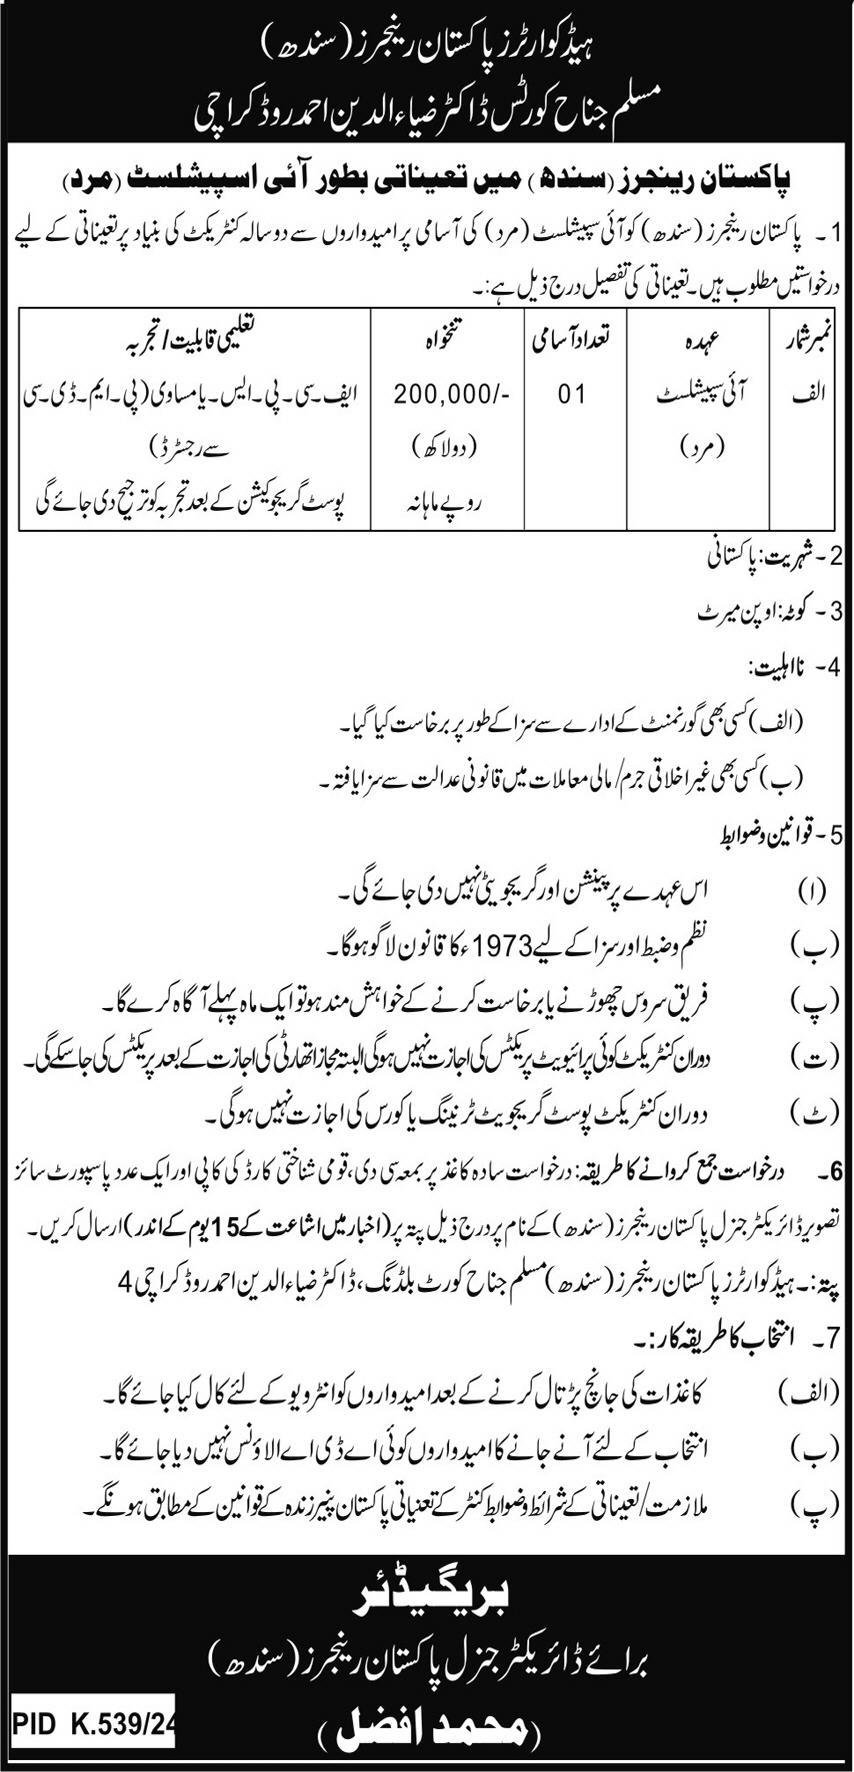 ہیڈکوارٹرز پاکستان رینجرز (سندھ)
مسلم جناح کورٹس ڈاکٹر ضیاء الدین احمد روڈ کراچی
پاکستان رینجرز (سندھ) میں تعیناتی بطور آئی اسپیشلسٹ (مرد)
1۔ پاکستان رینجرز (سندھ) کو آئی سپیشلسٹ (مرد) کی آسامی پر امیدواروں سے دو سالہ کنٹریکٹ کی بنیاد پر تعیناتی کے لیے
درخواستیں مطلوب ہیں۔ تعیناتی کی تفصیل درج ذیل ہے:۔
نمبر شمار عہدہ تعداد آسامی تنخواہ تعلیمی قابلیت/تجربہ
الف آئی سپیشلسٹ 01 200,000/- ایف۔سی۔پی۔ایس۔ یا مساوی (پی۔ایم۔ڈی۔سی
(مرد) (دو لاکھ) سے رجسٹرڈ)
روپے ماہانہ پوسٹ گریجوکیشن کے بعد تجربہ کو ترجیح دی جائے گی
2۔ شہریت: پاکستانی
3۔ کوٹہ: اوپن میرٹ
4۔ نااہلیت:
(الف) کسی بھی گورنمنٹ کے ادارے سے سزا کے طور پر برخاست کیا گیا۔
(ب) کسی بھی غیر اخلاقی جرم/ مالی معاملات میں قانونی عدالت سے سزا یافتہ۔
5۔ قوانین و ضوابط
(ا) اس عہدے پر پینشن اور گریجویٹی نہیں دی جائے گی۔
(ب) نظم و ضبط اور سزا کے لیے 1973ء کا قانون لاگو ہوگا۔
(پ) فریق سروس چھوڑنے یا برخاست کرنے کے خواہش مند ہو تو ایک ماہ پہلے آگاہ کرے گا۔
(ت) دوران کنٹریکٹ کوئی پرائیویٹ پریکٹس کی اجازت نہیں ہوگی البتہ مجاز اتھارٹی کی اجازت کے بعد پریکٹس کی جا سکے گی۔
(ٹ) دوران کنٹریکٹ پوسٹ گریجویٹ ٹریننگ یا کورس کی اجازت نہیں ہوگی۔
6۔ درخواست جمع کروانے کا طریقہ: درخواست سادہ کاغذ پر بمعہ سی وی، قومی شناختی کارڈ کی کاپی اور ایک عدد پاسپورٹ سائز
تصویر ڈائریکٹر جنرل پاکستان رینجرز (سندھ) کے نام پر درج ذیل پتہ پر (اخبار میں اشاعت کے 15 یوم کے اندر) ارسال کریں۔
پتہ:۔ ہیڈکوارٹرز پاکستان رینجرز (سندھ) مسلم جناح کورٹ بلڈنگ، ڈاکٹر ضیاء الدین احمد روڈ کراچی 4
7۔ انتخاب کا طریقہ کار:۔
(الف) کاغذات کی جانچ پڑتال کرنے کے بعد امیدواروں کو انٹرویو کے لئے کال کیا جائے گا۔
(ب) انتخاب کے لئے آنے جانے کا امیدواروں کوئی اے ڈی اے الاؤنس نہیں دیا جائے گا۔
(پ) ملازمت/ تعیناتی کے شرائط و ضوابط کنٹر کے تعنیاتی پاکستان کے قوانین کے مطابق ہونگے۔
بریگیڈئر
برائے ڈائریکٹر جنرل پاکستان رینجرز (سندھ)
(محمد افضل)
PID K.539/24